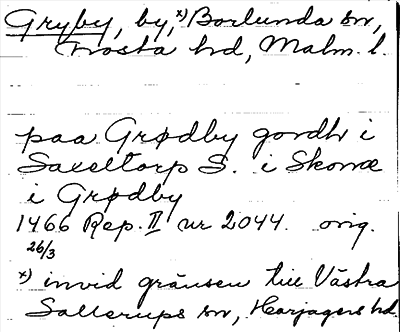 Gryby, by, x) Borlunda sn,
Frosta hd, Malm. l.
paa Grødby gordh i
Saxeltorp S. i Skonæ
i Grødby
1466 Rep. II nr 2044. orig.
26/3
x) invid gränsen till Västra
Sallerups sn, Harjagers hd.